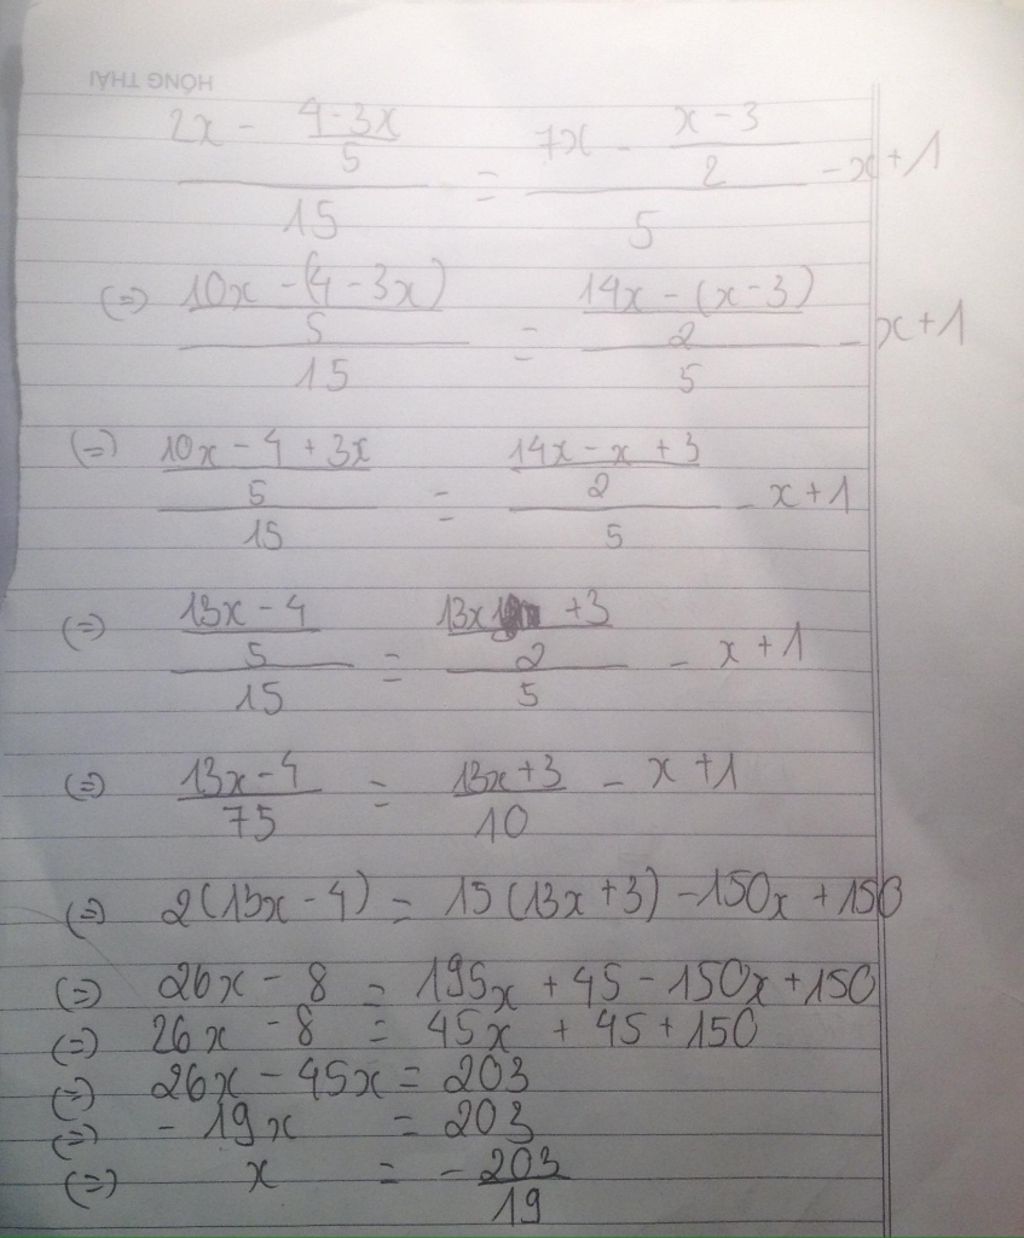 HONG THAI
(2x - (4-3x)/5)/15 = (7x - (x-3)/2)/5 - x+1
(=) ((10x-(4-3x))/5)/15 = ((14x-(x-3))/2)/5 - x+1
(=) ((10x-4+3x)/5)/15 = ((14x-x+3)/2)/5 - x+1
(=) ((13x-4)/5)/15 = ((13x +3)/2)/5 - x+1
(=) (13x-4)/75 = (13x+3)/10 - x+1
(=) 2(13x-4) = 15(13x+3)-150x+150
(=) 26x-8 = 195x+45-150x+150
(=) 26x-8 = 45x+45+150
(=) 26x-45x = 203
(=) -19x = 203
(=) x = -203/19